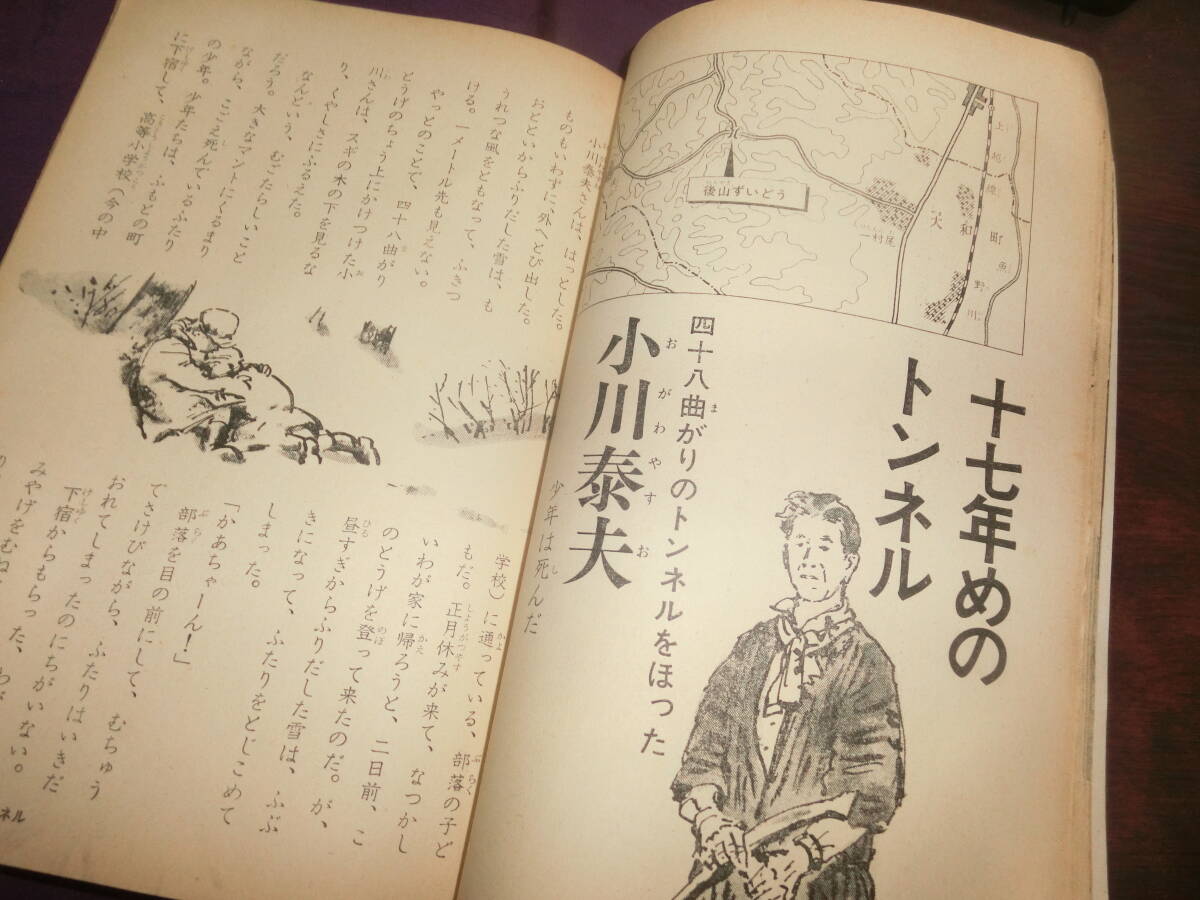 十七年めの
トンネル
四十八曲がりのトンネルをほった
小川泰夫
おがわやすお
後山ずいどう
一村尾
大和町
上越線
魚野川
少年は死んだ
小川泰夫さんは、はっとした。
ものもいわずに、外へとび出した。
おとといからふりだした雪は、も
うれつな風をともなって、ふきつ
ける。一メートル先も見えない。
やっとのことで、四十八曲がり
どうげのちょう上にかけつけた小
川さんは、スギの木の下を見るな
り、くやしさにふるえた。
なんという、むごたらしいこと
だろう。大きなマントにくるまり
ながら、こごえ死んでいるふたり
の少年。少年たちは、ふもとの町
に下宿して、高等小学校（今の中
学校）に通っている、部落の子ど
もだ。正月休みが来て、なつかし
いわが家に帰ろうと、二日前、こ
のとうげを登って来たのだ。が、
昼すぎからふりだした雪は、ふぶ
きになって、ふたりをとじこめて
しまった。
「かあちゃーん！」
部落を目の前にして、むちゅう
でさけびながら、ふたりはいきだ
おれてしまったのにちがいない。
下宿からもらった、わが
みやげをむね
ネル